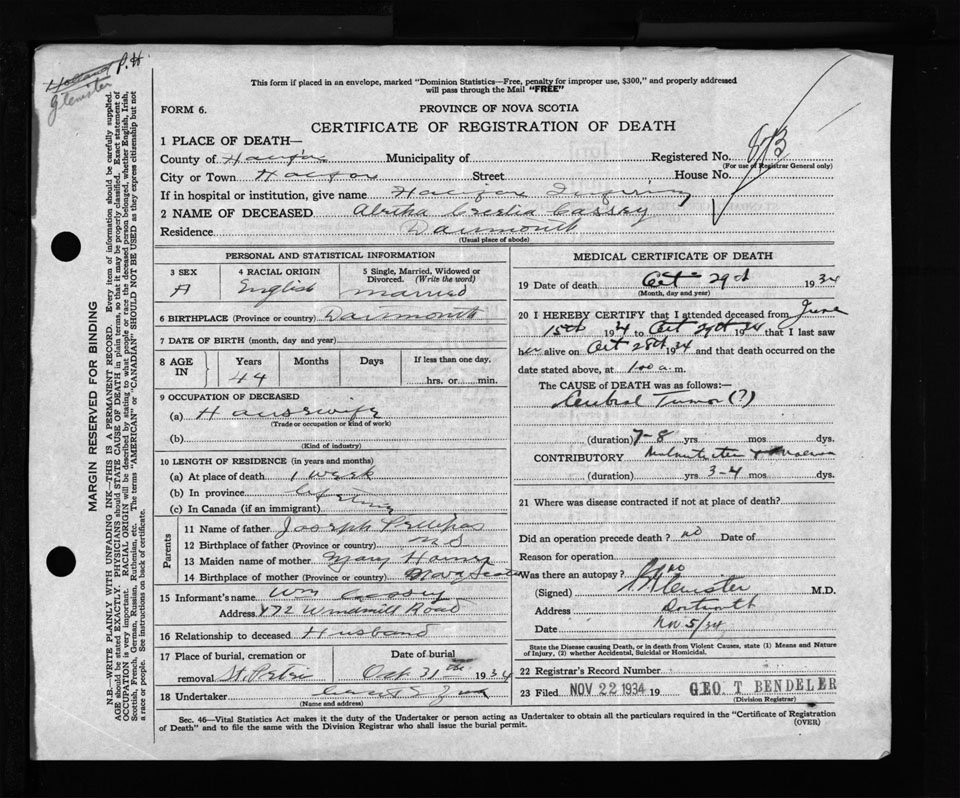 P.H.
Glenister
This form if placed in an envelope, marked "Dominion Statistics—Free, penalty for improper use, $300," and properly addressed
will pass through the Mail "FREE"
FORM 6.
PROVINCE OF NOVA SCOTIA
CERTIFICATE OF REGISTRATION OF DEATH
1 PLACE OF DEATH—
County of Halifax Municipality of Registered No. 873
(For use of Registrar General only)
City or Town Halifax Street House No.
If in hospital or institution, give name Halifax Infirmary
2 NAME OF DECEASED Cecelia
Residence Dartmouth
(Usual place of abode)
PERSONAL AND STATISTICAL INFORMATION
3 SEX 4 RACIAL ORIGIN 5 Single, Married, Widowed or Divorced. (Write the word)
English married
6 BIRTHPLACE (Province or country) Dartmouth
7 DATE OF BIRTH (month, day and year)
8 AGE IN Years Months Days If less than one day.
44 hrs. or min.
9 OCCUPATION OF DECEASED
(a) Housewife
(Trade or occupation or kind of work)
(b)
(Kind of industry)
10 LENGTH OF RESIDENCE (in years and months)
(a) At place of death 1 week
(b) In province lifetime
(c) In Canada (if an immigrant)
Parents
11 Name of father Joseph
12 Birthplace of father (Province or country) N S
13 Maiden name of mother Mary
14 Birthplace of mother (Province or country) Nova Scotia
15 Informant's name Wm
Address 172 Windmill Road
16 Relationship to deceased Husband
17 Place of burial, cremation or removal St. Peters Date of burial Oct. 31st 1934
18 Undertaker
(Name and address)
MEDICAL CERTIFICATE OF DEATH
19 Date of death Oct 29th 1934
(Month, day and year)
20 I HEREBY CERTIFY that I attended deceased from June
15th 1934 to Oct 29th 1934 that I last saw
her alive on Oct 28th 34 and that death occurred on the
date stated above, at 1.00 a.m.
The CAUSE of DEATH was as follows:—
Cerebral Tumor (?)
(duration) 7-8 yrs mos dys.
CONTRIBUTORY
(duration) yrs 3-4 mos dys.
21 Where was disease contracted if not at place of death?
Did an operation precede death? no Date of
Reason for operation
Was there an autopsy? no
(Signed) Glenister M.D.
Address Dartmouth
Date Nov 5/34
State the Disease causing Death, or in death from Violent Causes, state (1) Means and Nature
of Injury, (2) whether Accidental, Suicidal or Homicidal.
22 Registrar's Record Number
23 Filed NOV 22 1934 19 GEO. T. BENDELER
(Division Registrar)
Sec. 46—Vital Statistics Act makes it the duty of the Undertaker or person acting as Undertaker to obtain all the particulars required in the "Certificate of Registration
of Death" and to file the same with the Division Registrar who shall issue the burial permit.
(OVER)
MARGIN RESERVED FOR BINDING
N.B.—WRITE PLAINLY WITH UNFADING INK—THIS IS A PERMANENT RECORD. Every item of information should be carefully supplied.
AGE should be stated EXACTLY. PHYSICIANS should STATE CAUSE OF DEATH in plain terms, so that it may be properly classified. Exact statement of
OCCUPATION is very important. RACIAL ORIGIN will be described by stating to what people or race the deceased person belonged, whether English, Irish,
Scottish, French, German, Russian, Ruthenian, etc. The terms "AMERICAN" or "CANADIAN" SHOULD NOT BE USED as they express citizenship but not
a race or people. See instructions on back of certificate.